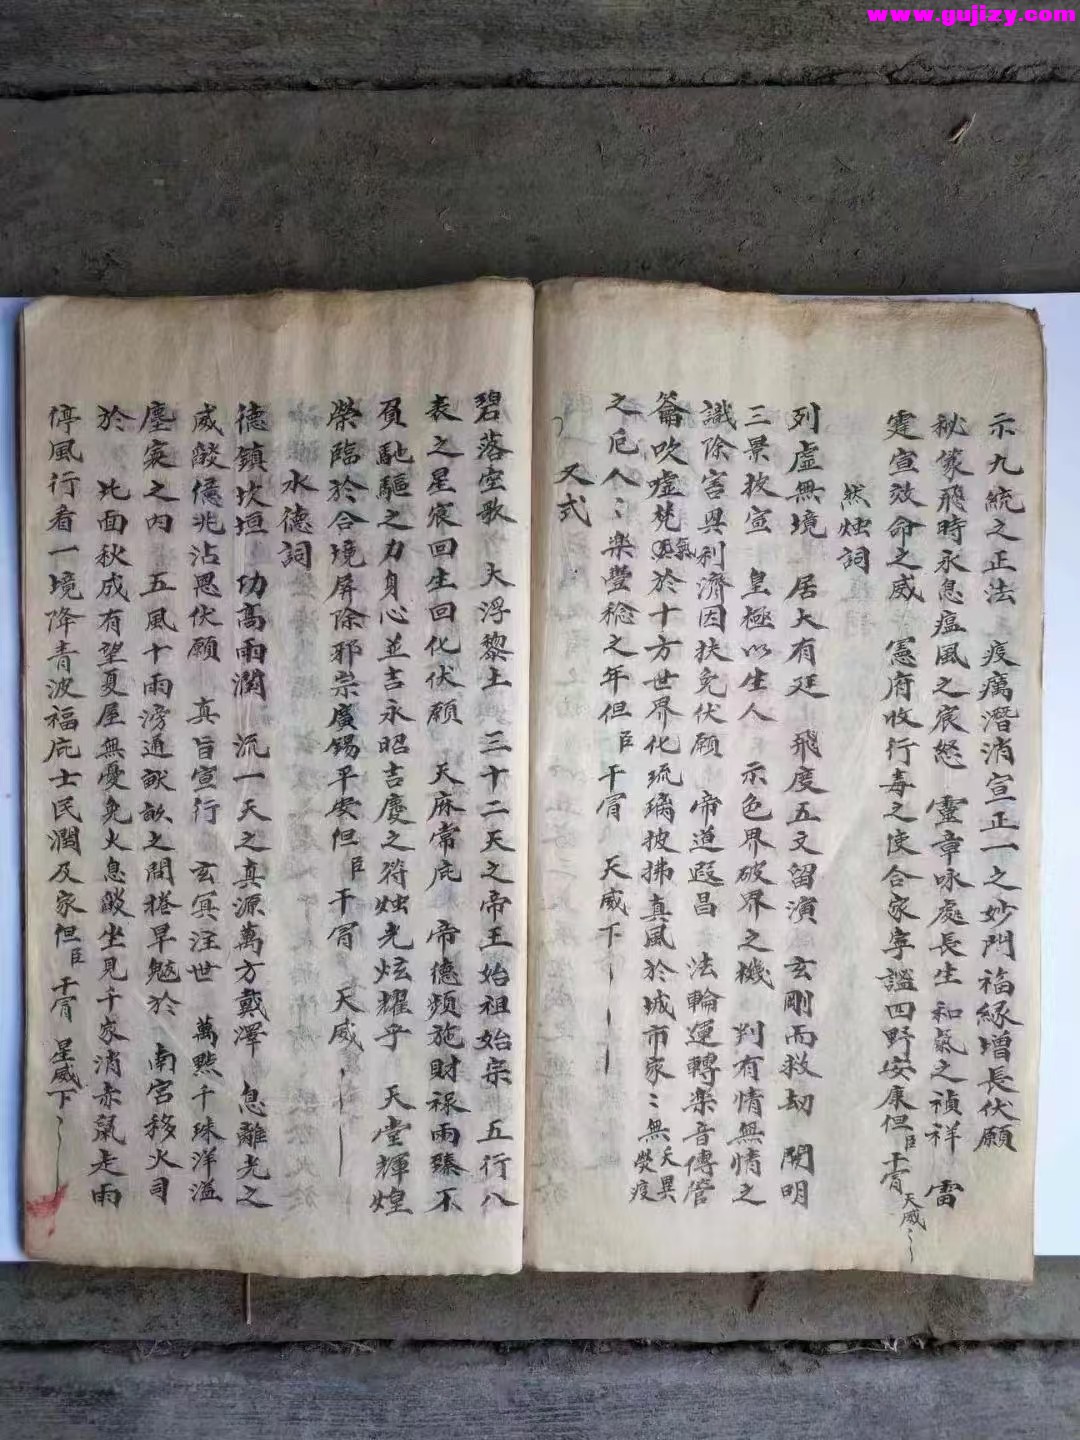 www.gujizy.com
示九統之正法 疫癘潛消宣正一之妙門福緣增長伏願
秘篆飛時永息瘟風之宸怒 靈章咏處長生和氣之禎祥 雷
霆宣效命之威 憲府收行毒之使合家寧謐四野安康但臣干冒天威
然烛詞
列虛無境 居大有廷 飛度五文留演 玄剛而救劫 開明
三景披宣 皇極以生人 示色界破界之機 判有情無情之
識除害興利濟因扶免伏願 帝道遐昌 法輪運轉樂音傳管
籥吹噓梵氣於十方世界化琉璃披拂真風於城市家〻無天異熒疫
之厄人〻樂豐稔之年但臣干冒 天威下
又式
碧落空歌 大浮黎土 三十二天之帝王始祖始宗 五行八
表之星宸回生回化伏願 天麻常庇 帝德頻施財祿雨臻不
負馳驅之力身心並吉永昭吉慶之符烛光炫耀乎 天堂輝煌
榮臨於合境屏除邪祟廣錫平安但臣干冒 天威
水德詞
德鎮坎垣 功高雨潤 流一天之真源萬方戴澤 息離光之
威燄億兆沾恩伏願 真旨宣行 玄冥注世 萬㸃千珠洋溢
塵寰之內 五風十雨滂通畎畝之間捲旱魃於 南宮移火司
於 北面秋成有望夏屋無憂免火息燄坐見千家消赤氣走雨
停風行看一境降青波福庇士民潤及家但臣干冒 星威下